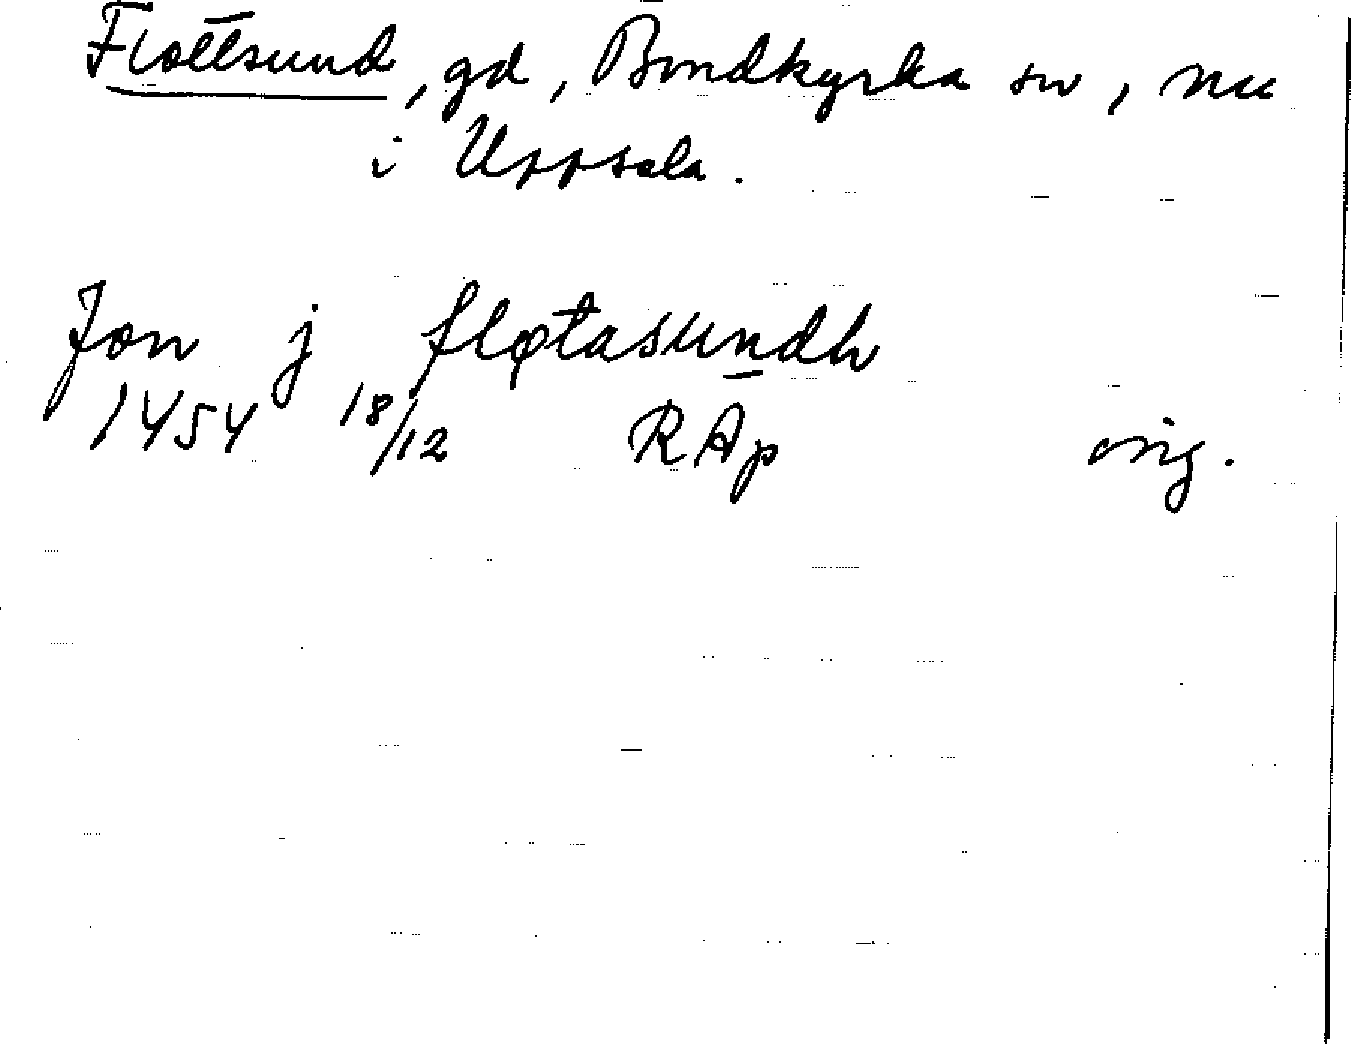 Flottsund, gd, Bondkyrka sn, nu
i Uppsala.
Jon j fløtasundh
1454 18/12 RAp orig.